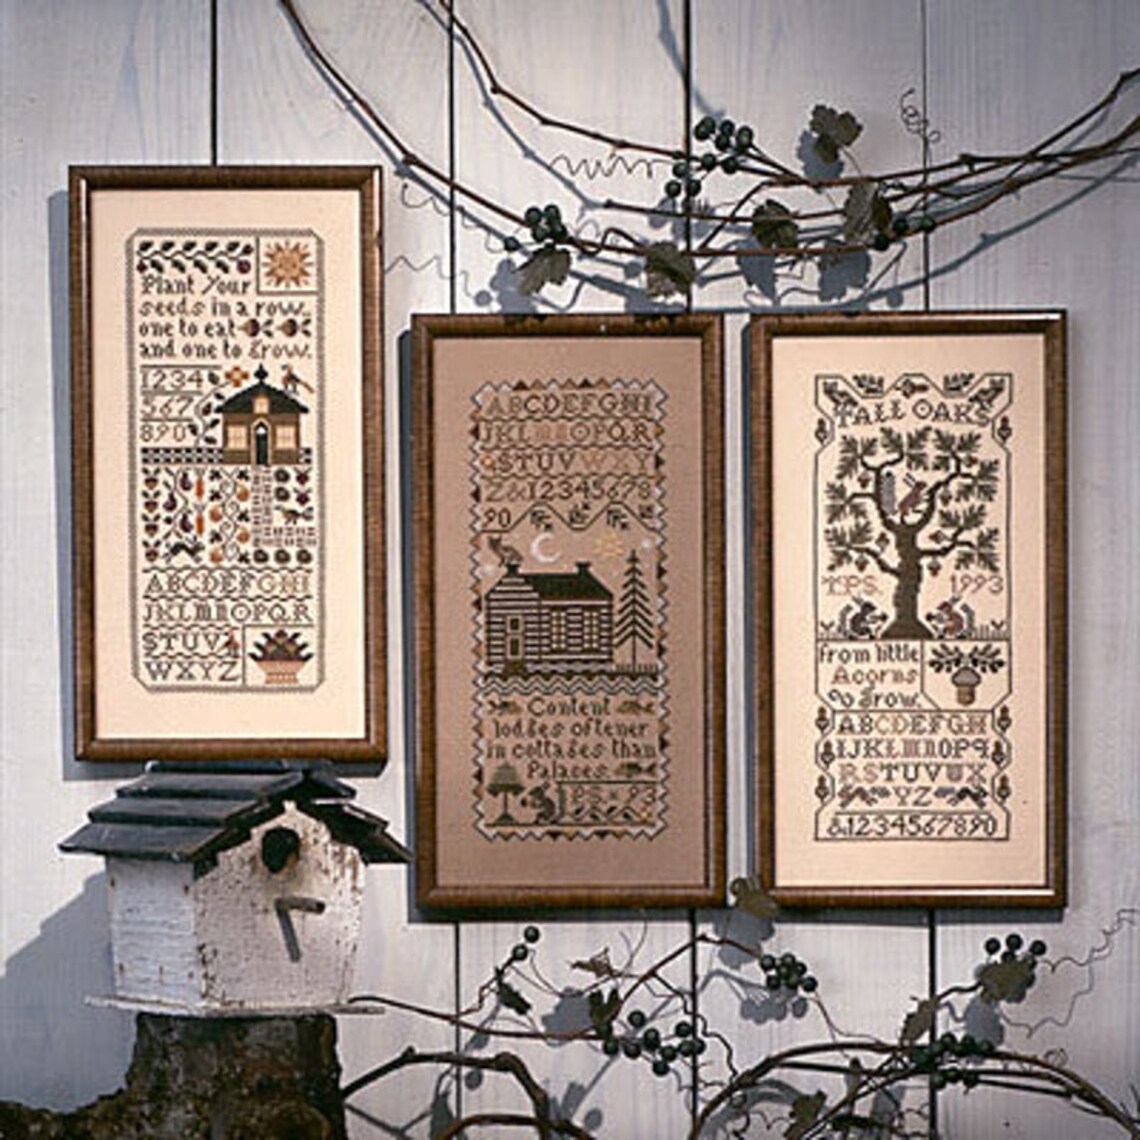 Plant Your
seeds in a row,
one to eat
and one to Grow.
1234
567
890
ABCDEFGHI
JKLMNOPQR
STUV
WXYZ
ABCDEFGHI
JKLMNOPQR
STUVWXY
Z&12345678
90
Content
lodges oftener
in cottages than
Palaces
TPS 93
TALL OAKS
TPS 1993
from little
Acorns
Grow.
ABCDEFGH
IJKLMNOPQ
RSTUVWX
YZ
&1234567890